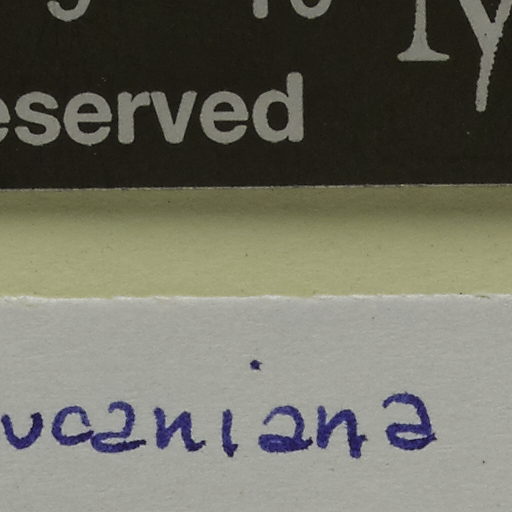 eserved
ucaniana